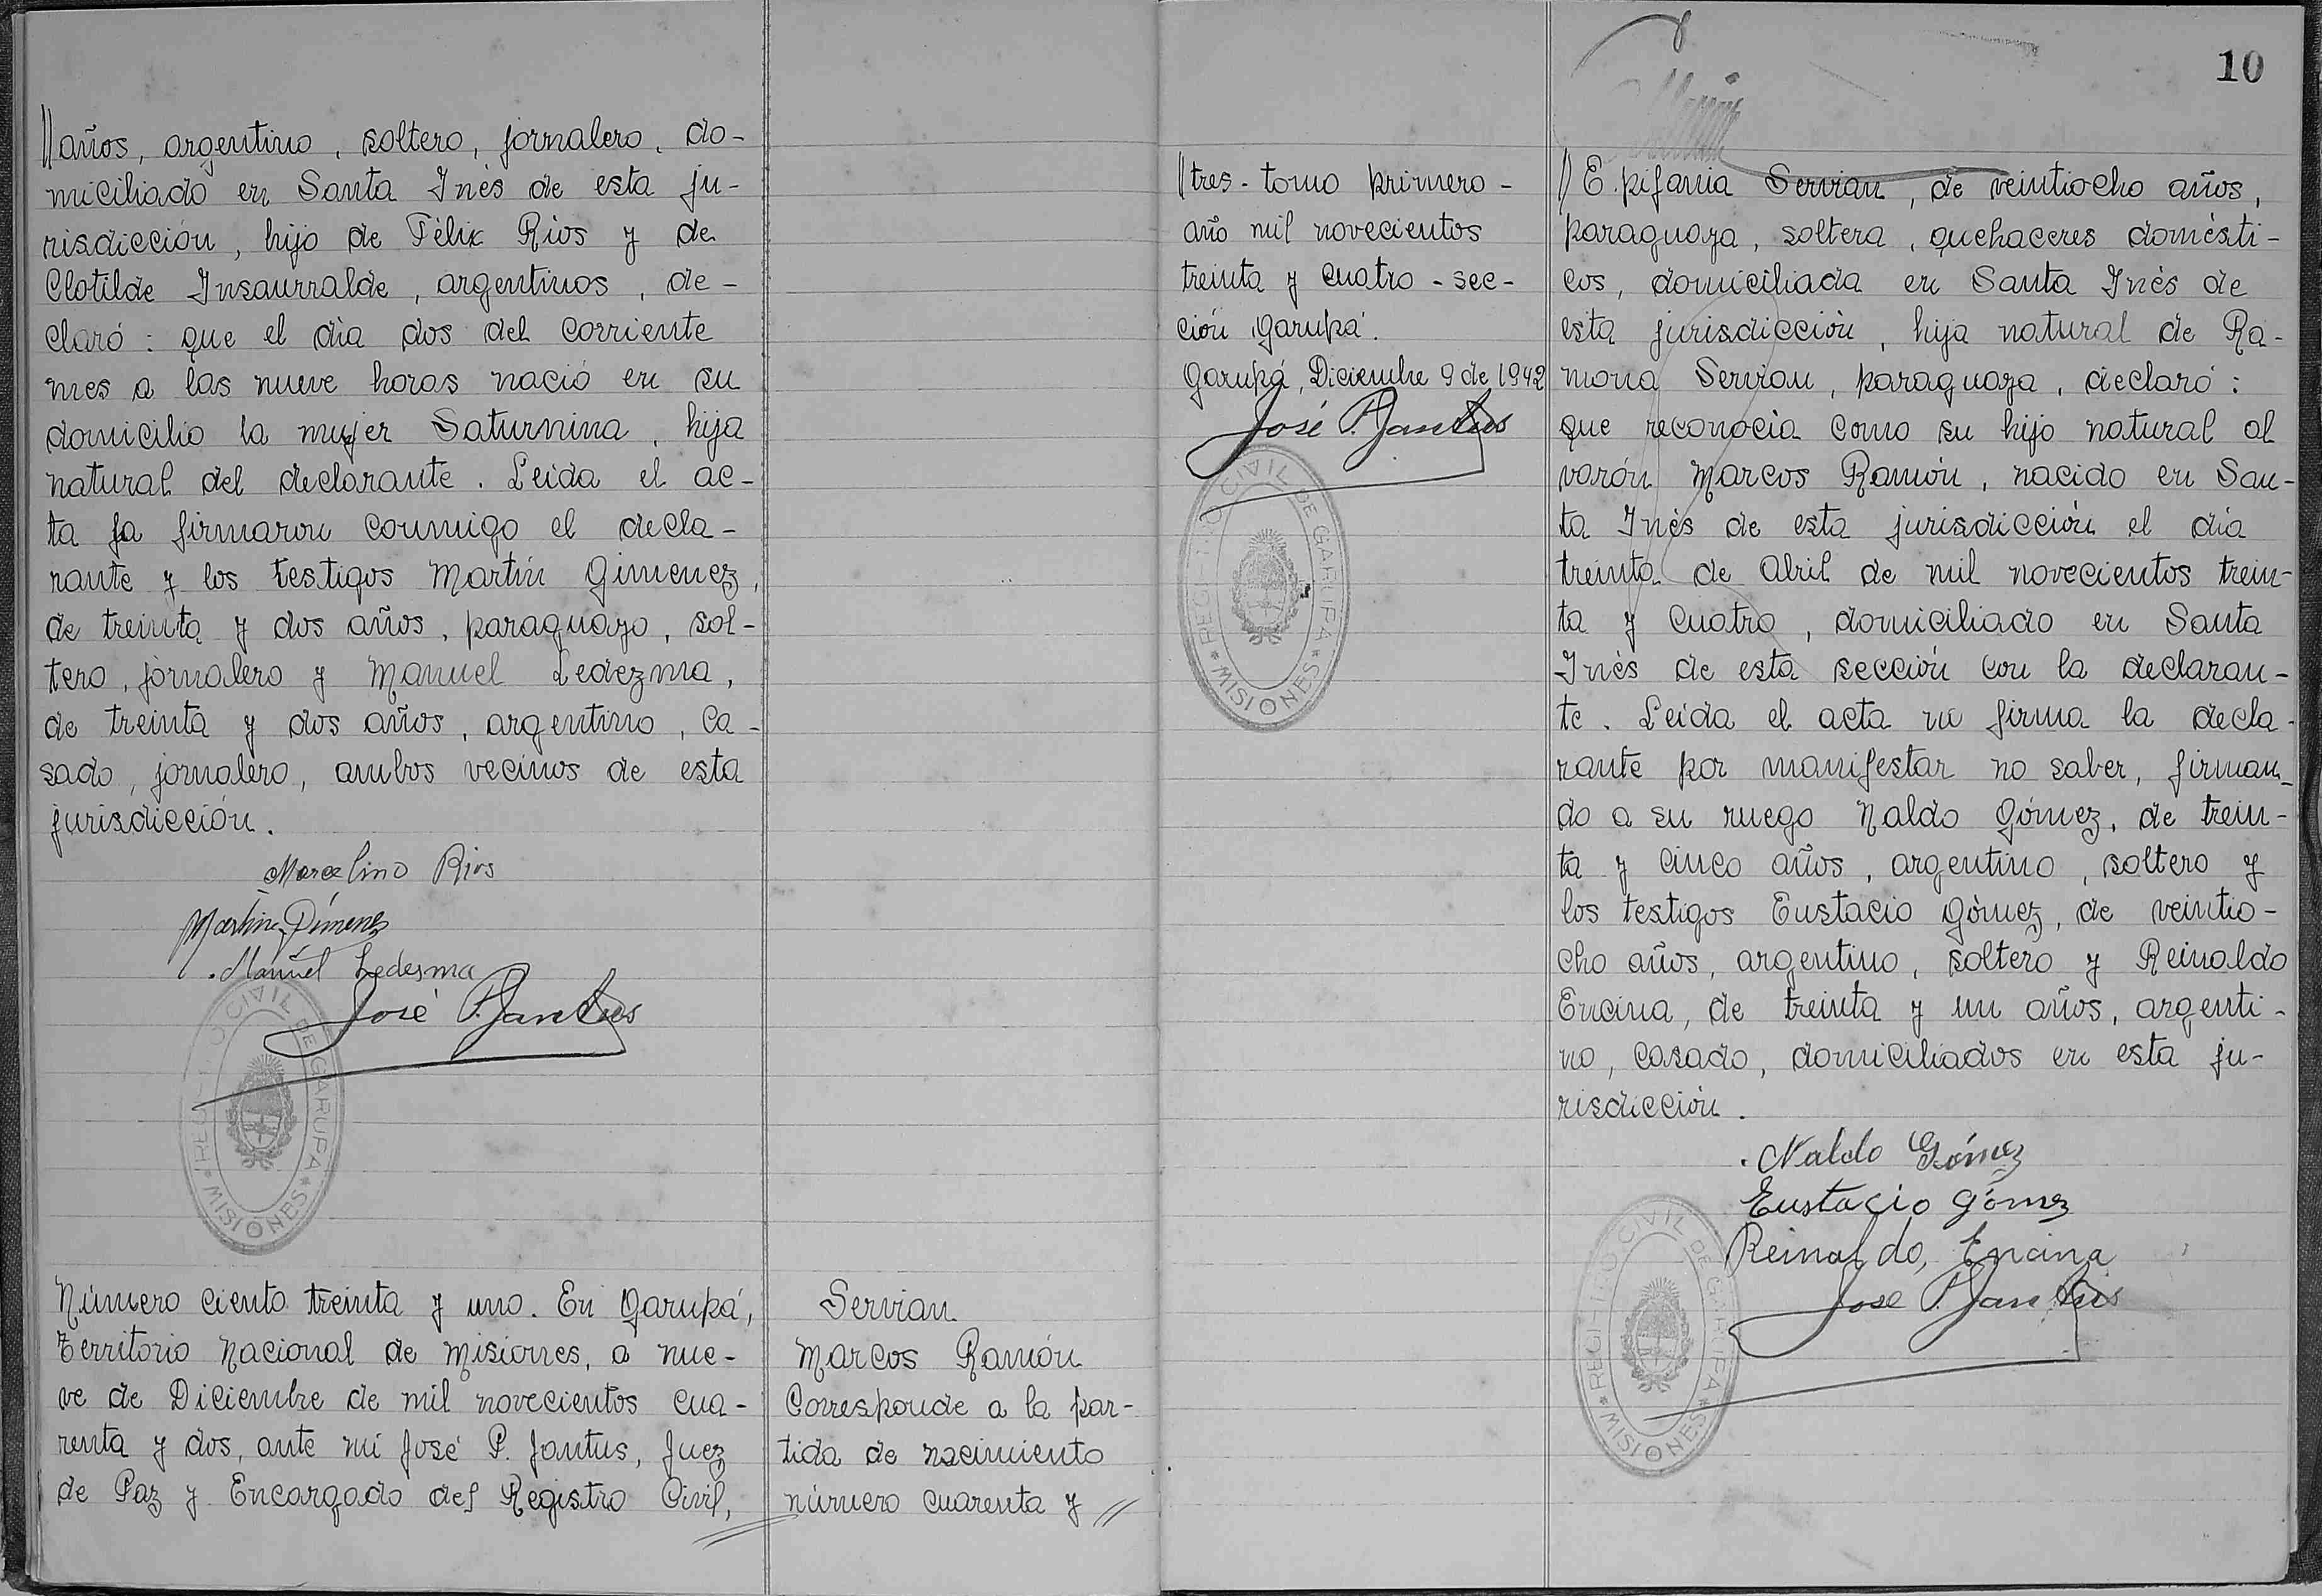 //años, argentino, soltero, jornalero, do-
miciliado en Santa Inés de esta ju-
risdicción, hijo de Félix Rios y de
Clotilde Insaurralde, argentinos, de-
claró: que el día dos del corriente
mes a las nueve horas nació en su
domicilio la mujer Saturnina, hija
natural del declarante. Leida el ac-
ta la firmaron conmigo el decla-
rante y los testigos Martín Gimenez,
de treinta y dos años, paraguayo, sol-
tero, jornalero y Manuel Ledezma,
de treinta y dos años, argentino, ca-
sado, jornalero, ambos vecinos de esta
jurisdicción.
Marcelino Rios
Martin Jimenez
Manuel Ledesma
José P. Jantus
REGISTRO CIVIL DE GARUPA * MISIONES *
Número ciento treinta y uno. En Garupá,
Territorio Nacional de Misiones, a nue-
ve de Diciembre de mil novecientos cua-
renta y dos, ante mí José P. Jantus, Juez
de Paz y Encargado del Registro Civil,
Servian
Marcos Ramón
Corresponde a la par-
tida de nacimiento
número cuarenta y //
//tres - tomo primero -
año mil novecientos
treinta y cuatro - sec-
ción Garupá.
Garupá, Diciembre 9 de 1942
José P. Jantus
REGISTRO CIVIL DE GARUPA * MISIONES *
10
//Epifania Servian, de veintiocho años,
paraguaya, soltera, quehaceres domésti-
cos, domiciliada en Santa Inés de
esta jurisdicción, hija natural de Ra-
mona Servian, paraguaya, declaró:
que reconocía como su hijo natural al
varón Marcos Ramón, nacido en San-
ta Inés de esta jurisdicción el día
treinta de Abril de mil novecientos trein-
ta y cuatro, domiciliado en Santa
Inés de esta sección con la declaran-
te. Leida el acta no firma la decla-
rante por manifestar no saber, firman-
do a su ruego Naldo Gómez, de trein-
ta y cinco años, argentino, soltero y
los testigos Eustacio Gómez, de veintio-
cho años, argentino, soltero y Reinaldo
Encina, de treinta y un años, argenti-
no, casado, domiciliados en esta ju-
risdicción.
Naldo Gómez
Eustacio Gómez
Reinaldo, Encina
José P. Jantus
REGISTRO CIVIL DE GARUPA * MISIONES *